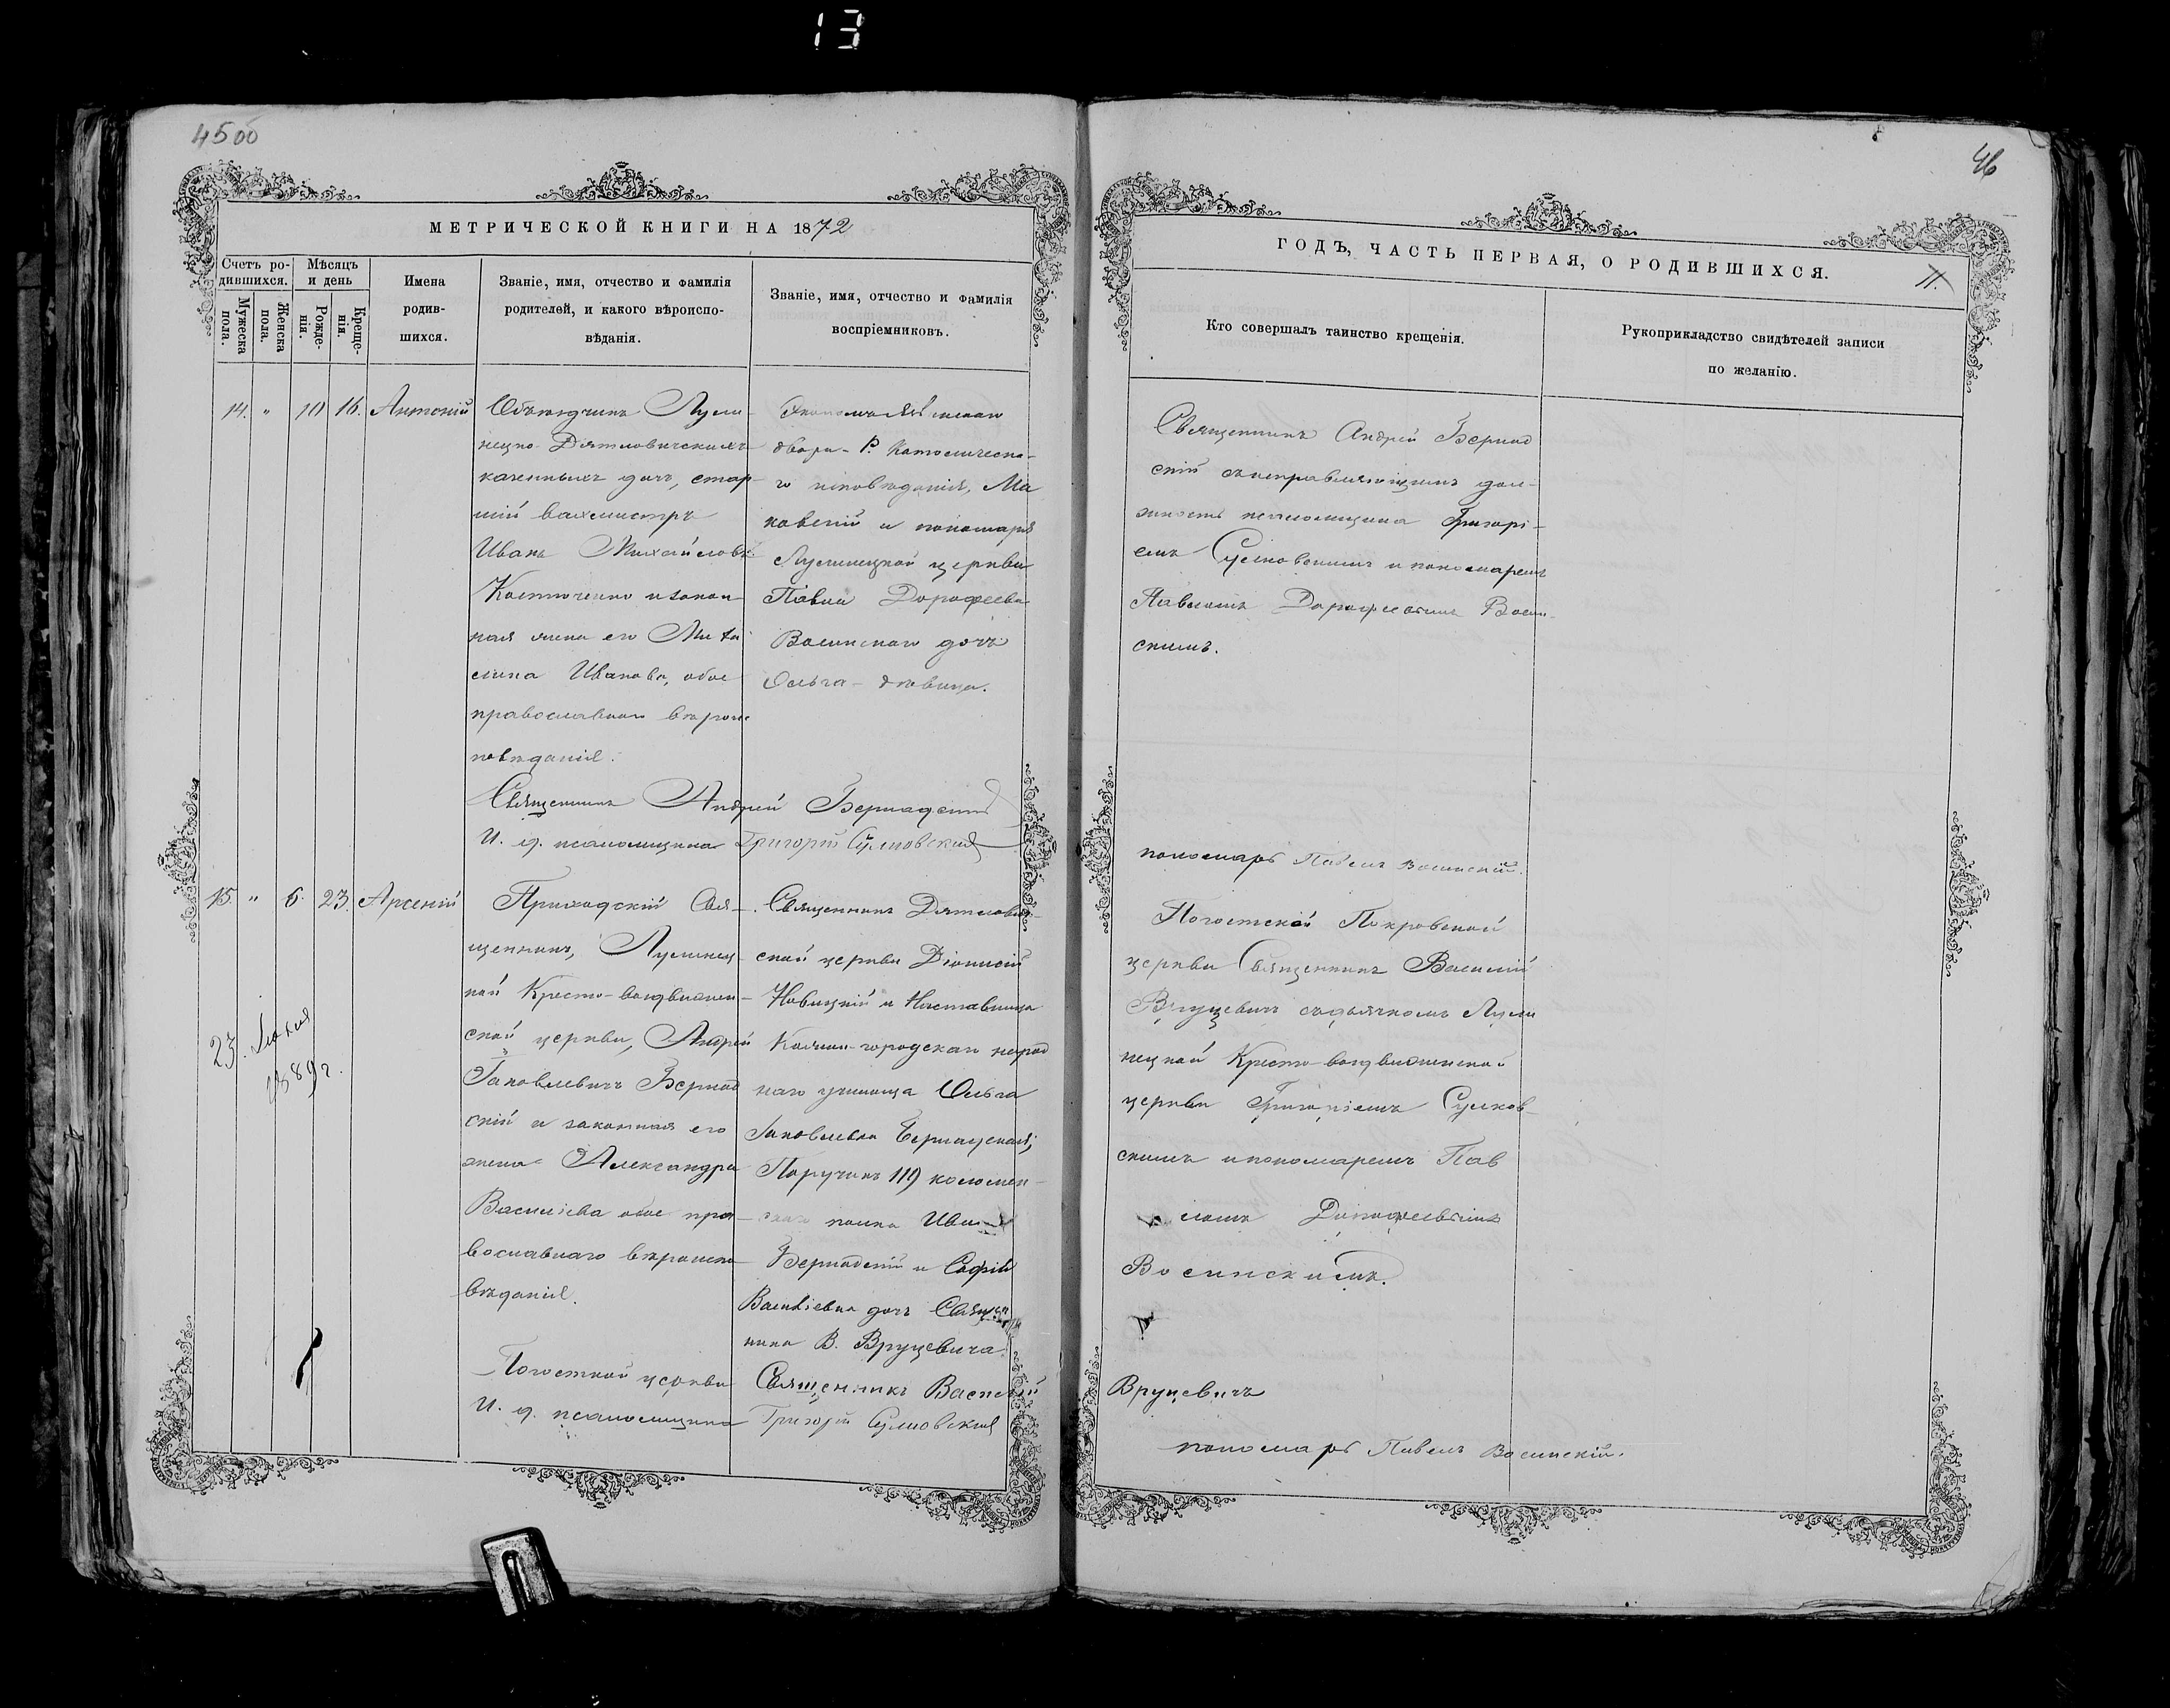 13
45об
46
МЕТРИЧЕСКОЙ КНИГИ НА 1872
ГОДЪ, ЧАСТЬ ПЕРВАЯ, О РОДИВШИХСЯ.
Счетъ ро-
дившихся.
Мужеска
пола.
Женска
пола.
Мѣсяцъ
и день
Рожде-
нія.
Креще-
нія.
Имена
родив-
шихся.
Званіе, имя, отчество и фамилія
родителей, и какого вѣроиспо-
вѣданія.
Званіе, имя, отчество и фамилія
воспріемниковъ.
Кто совершалъ таинство крещенія.
Рукоприкладство свидѣтелей записи
по желанію.
14. " 10 16. Антоній
Объѣздчикъ Луни-
нецко-Дятловичскихъ
казенныхъ дачъ, стар-
шій вахмистръ
Иванъ Михайловъ
и закон-
ная жена его
Иванова, обое
православнаго вѣроис-
повѣданія.
двора - Р. Католическа-
го исповѣданія,
и пономаря
Лунинецкой церкви
Павла Дорофеева
Восинскаго дочь
Ольга - дѣвица.
Священникъ Андрей Бернад
скій съ исправляющимъ дол-
жность псаломщика Григорі-
емъ Сулковскимъ и пономаремъ
Павломъ Дорофеевымъ Восин-
скимъ.
Священникъ Андрей Бернадскій
И. д. псаломщика Григорій Сулковскій
пономарь Павелъ Восинскій.
15. " 6. 23. Арсеній
Приходскій Свя-
щенникъ, Лунинец-
кой Кресто-воздвижен-
ской церкви, Андрей
Іаковлевичъ Бернад
скій и законная его
жена Александра
Василіева обое пра-
вославнаго вѣроиспо-
вѣданія.
Священникъ Дятлович-
ской церкви Діонисій
Новицкій и Наставница
Кожан-городскаго народ
наго училища Ольга
Іаковлевна Бернадская;
Поручикъ 119 коломен-
скаго полка Иван
Бернадскій и Софія
Василіевна дочь Священ
ника В. Вруцевича.
Погостской Покровской
церкви Священникъ Василій
Вруцевичъ съ дьячкомъ Луни
нецкой Кресто-воздвиженской
церкви Григоріемъ Сулков-
скимъ и пономаремъ Пав
ломъ Дорофеевымъ
Восинскимъ.
23.
1889 г.
Погосткой церкви Священникъ Василій Вруцевичъ
И. д. псаломщика Григорій Сулковскій
пономарь Павелъ Восинскій.